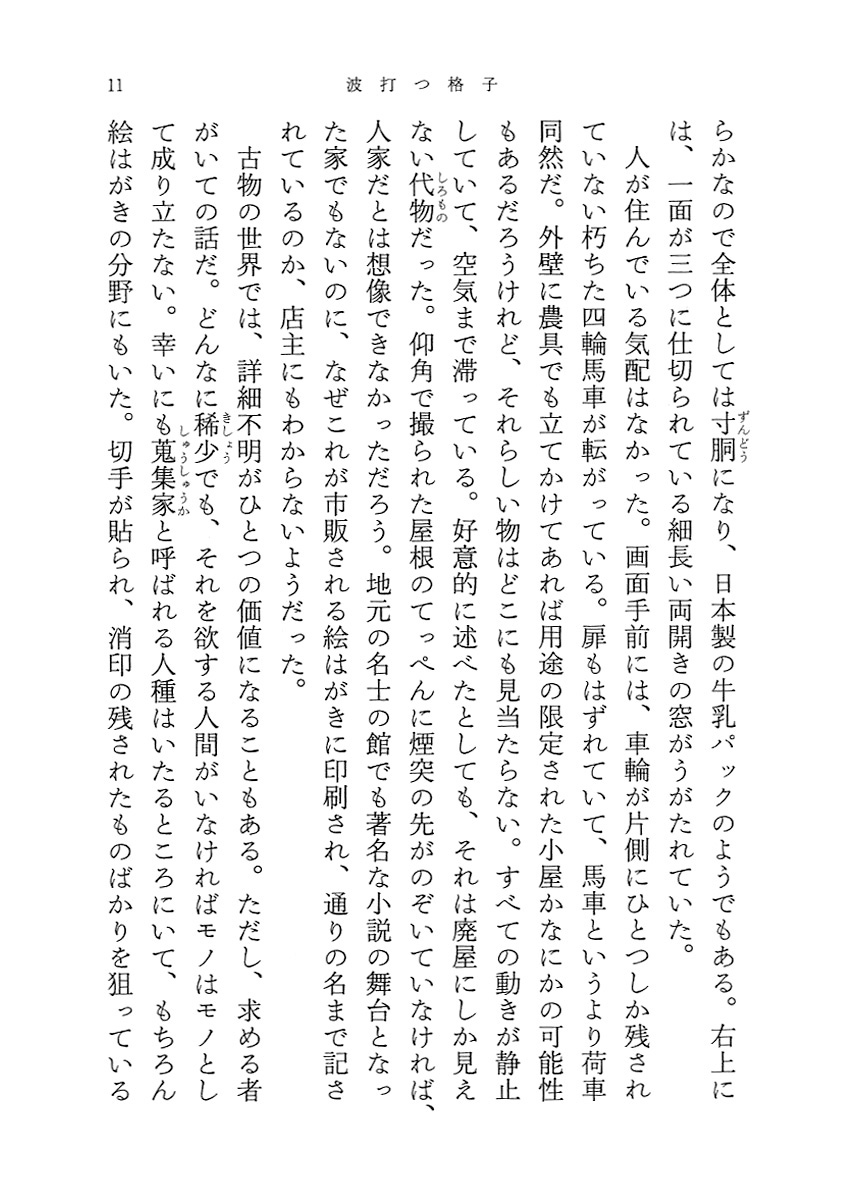 11
波打つ格子
らかなので全体としては寸胴になり、日本製の牛乳パックのようでもある。右上に
ずんどう
は、一面が三つに仕切られている細長い両開きの窓がうがたれていた。
人が住んでいる気配はなかった。画面手前には、車輪が片側にひとつしか残され
ていない朽ちた四輪馬車が転がっている。扉もはずれていて、馬車というより荷車
同然だ。外壁に農具でも立てかけてあれば用途の限定された小屋かなにかの可能性
もあるだろうけれど、それらしい物はどこにも見当たらない。すべての動きが静止
していて、空気まで滞っている。好意的に述べたとしても、それは廃屋にしか見え
ない代物だった。仰角で撮られた屋根のてっぺんに煙突の先がのぞいていなければ、
しろもの
人家だとは想像できなかっただろう。地元の名士の館でも著名な小説の舞台となっ
た家でもないのに、なぜこれが市販される絵はがきに印刷され、通りの名まで記さ
れているのか、店主にもわからないようだった。
古物の世界では、詳細不明がひとつの価値になることもある。ただし、求める者
がいての話だ。どんなに稀少でも、それを欲する人間がいなければモノはモノとし
きしょう
て成り立たない。幸いにも蒐集家と呼ばれる人種はいたるところにいて、もちろん
しゅうしゅうか
絵はがきの分野にもいた。切手が貼られ、消印の残されたものばかりを狙っている